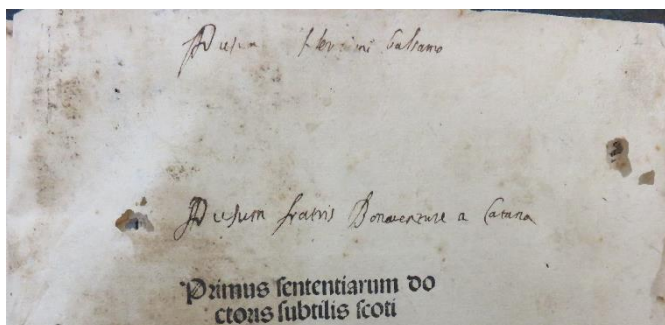 Ad usum balsamo
Ad usum fratris Bonaventure a Catana
Primus sententiarum do
ctoris subtilis scoti